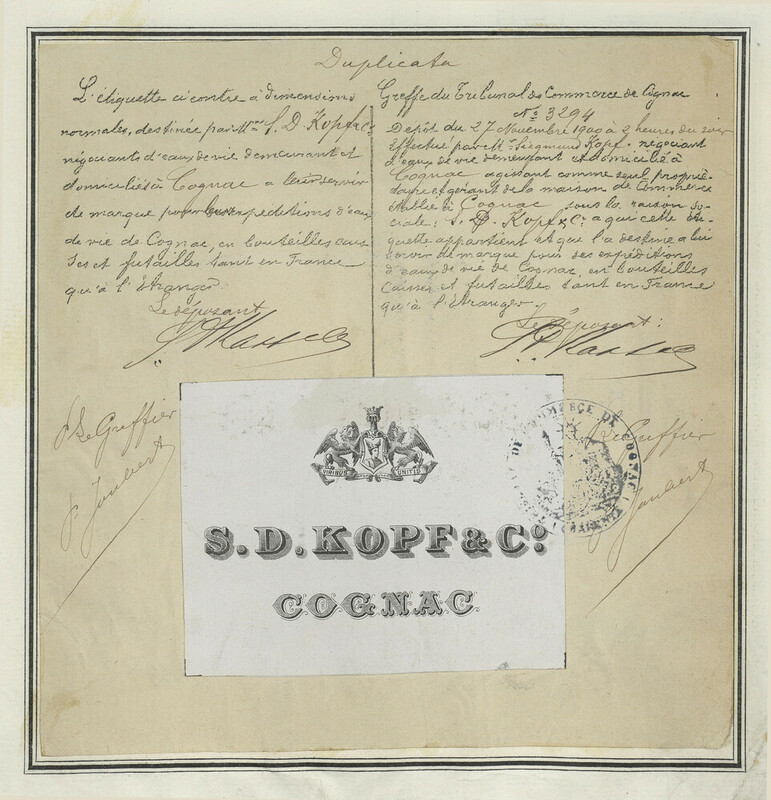 Duplicata
L'étiquette ci contre à dimensions
normales, destinée par M. S. D. Kopf & Co
négociants d'eaux de vie demeurant et
domiciliés à Cognac a leur servir
de marque pour leurs expéditions d'eaux
de vie de Cognac, en bouteilles cais
ses et futailles tant en France
qu'à l'étranger.
Le déposant
Greffe du Tribunal de Commerce de Cognac
No 3294
Dépôt du 27 Novembre 1909 à 2 heures du soir
effectué par Mr Siegmund Kopf négociant
d'eaux de vie demeurant et domicilié à
Cognac agissant comme seul proprié-
taire et gérant de la maison de Commerce
établie à Cognac sous la raison so-
ciale: S. D. Kopf & Co a qui cette éti-
quette appartient et qui l'a destine a lui
servir de marque pour ses expéditions
d'eaux de vie de Cognac, en bouteilles
caisses et futailles tant en France
qu'à l'étranger
Le Déposant:
p Le Greffier
Joubert
Le Greffier
Joubert
DE COMMERCE DE COGNAC
VIRIBUS UNITIS
S. D. KOPF & Co.
COGNAC.